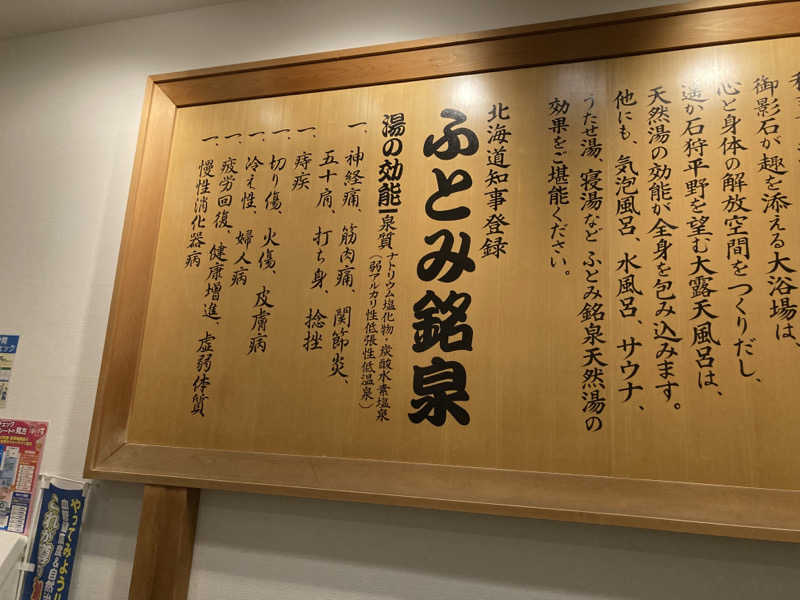 御影石が趣を添える大浴場は、
心と身体の解放空間をつくりだし、
遥か石狩平野を望む大露天風呂は、
天然湯の効能が全身を包み込みます。
他にも、気泡風呂、水風呂、サウナ、
うたせ湯、寝湯など ふとみ銘泉天然湯の
効果をご堪能ください。
北海道知事登録
ふとみ銘泉
湯の効能 泉質 ナトリウム塩化物・炭酸水素塩泉
(弱アルカリ性低張性低温泉)
一、神経痛、筋肉痛、関節炎、
五十肩、打ち身、捻挫
一、痔疾
一、切り傷、火傷、皮膚病
一、冷え性、婦人病
一、疲労回復、健康増進、虚弱体質
一、慢性消化器病
やってみよう